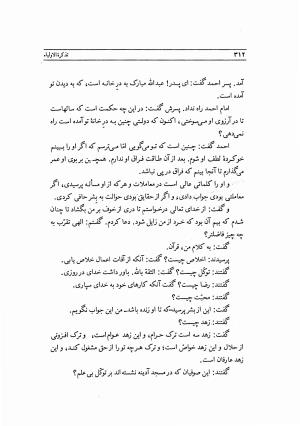 ۳۱۲ تذکرة‌الاولیاء
آمد. پسر احمد گفت: ای پدر! عبدالله مبارک به در خانه است، که به دیدن تو
آمده است.
امام احمد راه نداد. پسرش گفت: در این چه حکمت است که سالهاست
تا در آرزوی او می‌سوختی، اکنون که دولتی چنین به در خانهٔ تو آمده است راه
نمی‌دهی؟
احمد گفت: چنین است که تو می‌گویی امّا می‌ترسم که اگر او را ببینم
خوکردهٔ لطف او شوم. بعد از آن طاقت فراق او ندارم. همچنین بر بوی او عمر
می‌گذارم تا آنجا بینم که فراق در پی نباشد.
و او را کلماتی عالی است در معاملات و هر که از او مسأله پرسیدی، اگر
معاملتی بودی جواب دادی، و اگر از حقایق بودی حوالت به بشر حافی کردی.
و گفت: از خدای تعالی درخواستم تا دری از خوف بر من بگشاد تا چنان
شدم که بیم آن بود که خرد از من زایل شود. دعا کردم. گفتم: الهی تقرّب به
چه چیز فاضلتر؟
گفت: به کلام من، قرآن.
پرسیدند: اخلاص چیست؟ گفت: آنکه از آفات اعمال خلاص یابی.
گفتند: توکّل چیست؟ گفت: الثقة بالله. باور داشت خدای در روزی.
گفتند: رضا چیست؟ گفت آنکه کارهای خود به خدای سپاری.
گفتند: محبّت چیست؟
گفت: این از بشر پرسید که تا او زنده باشد. من این جواب نگویم.
گفتند: زهد چیست؟
گفت: زهد سه است ترک حرام، و این زهد عوام است، و ترک افزونی
از حلال و این زهد خواص است؛ و ترک هر چه تو را از حق مشغول کند، و این
زهد عارفان است.
گفتند: این صوفیان که در مسجد آدینه نشسته‌اند بر توکّل بی علم؟